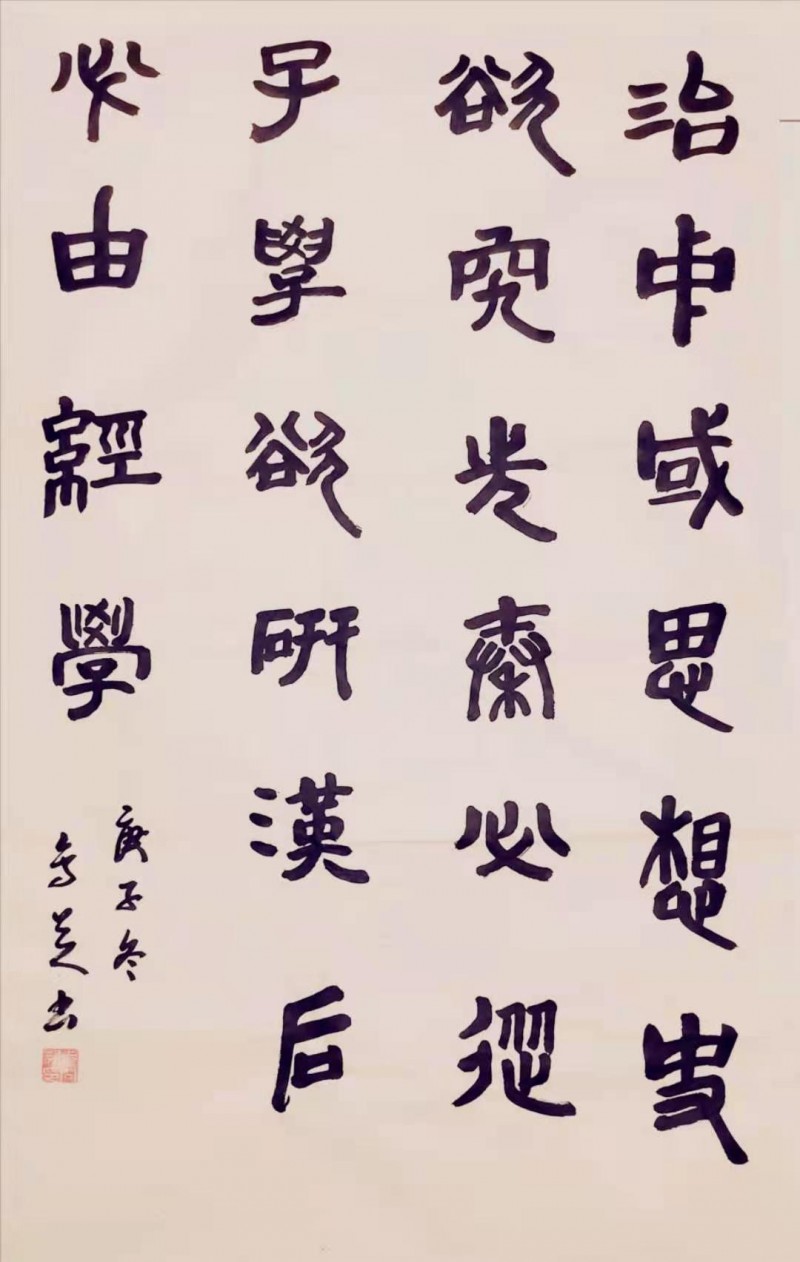 治中域思想史
欲究先秦必從
子學欲研漢后
必由經學
庚子冬
芝书